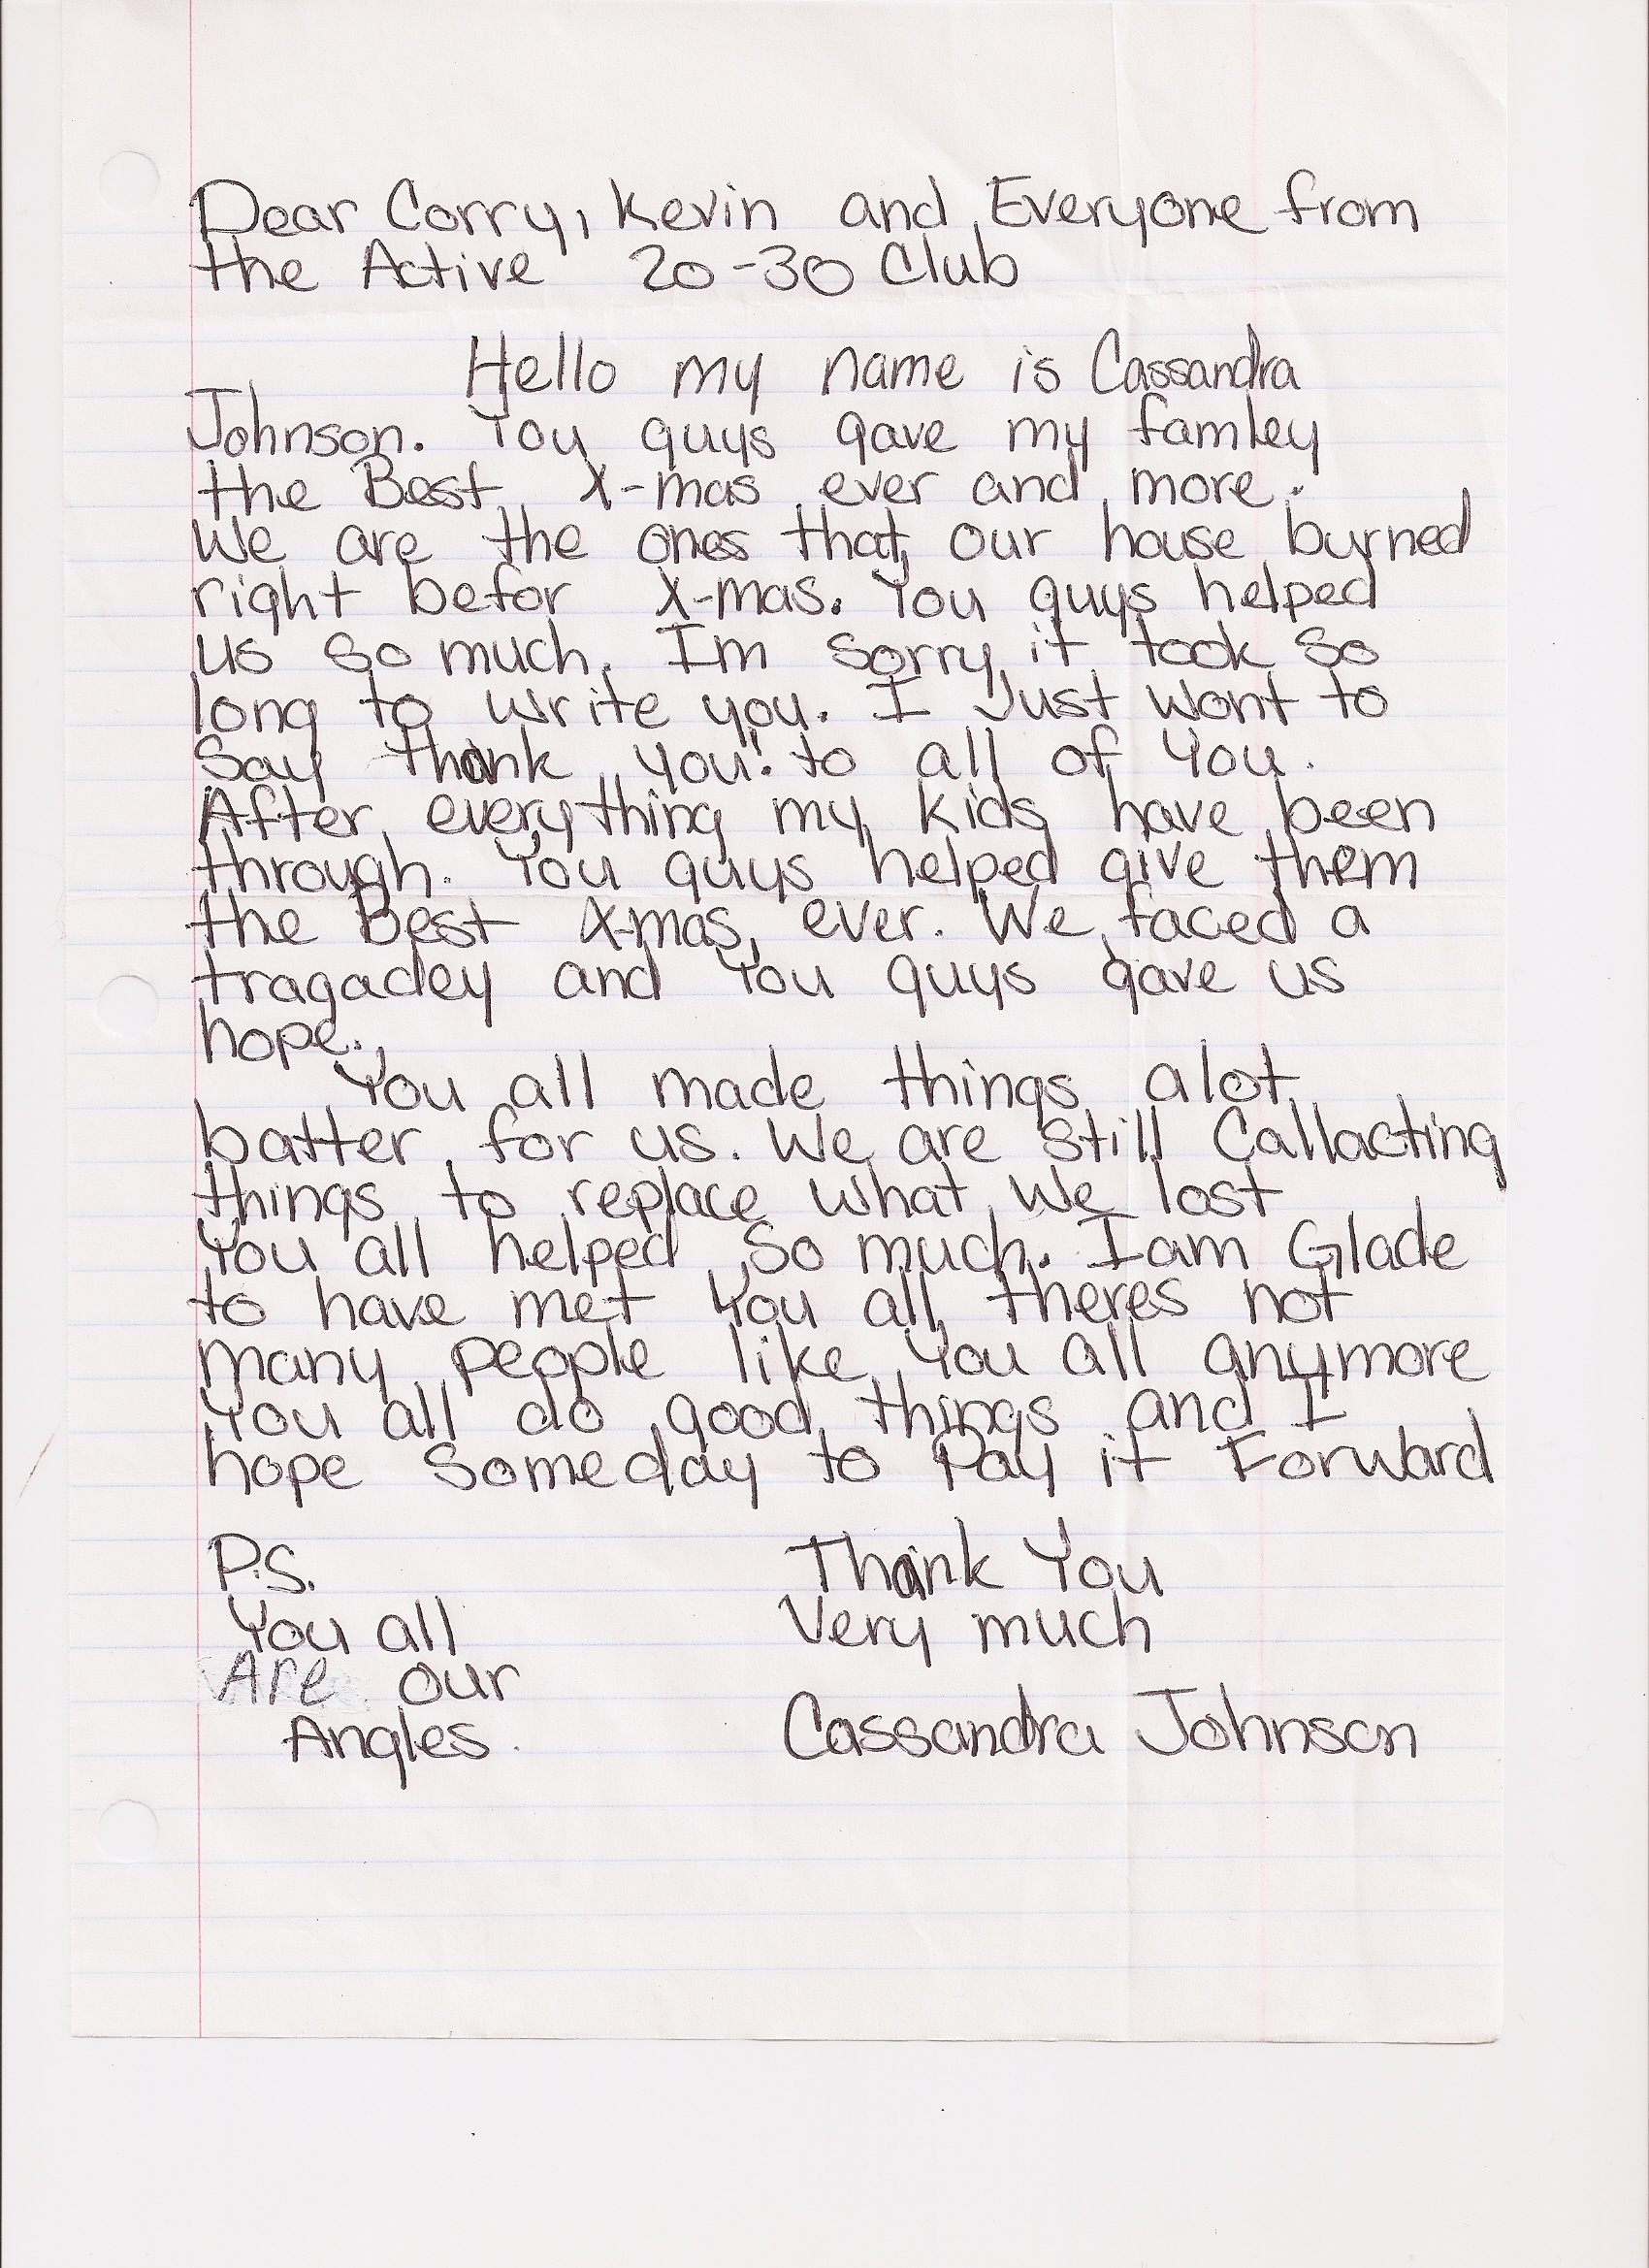 Dear Corry, Kevin and Everyone from
the Active 20-30 Club
Hello my name is Cassandra
Johnson. You guys gave my famley
the Best X-mas ever and more.
We are the ones that our house burned
right befor X-mas. You guys helped
us so much. Im sorry it took so
long to write you. I Just wont to
Say thank you! to all of you.
After everything my kids have been
through. You guys helped give them
the Best X-mas ever. We faced a
tragadey and You guys gave us
hope.
You all made things alot
batter for us. We are still Callacting
things to replace what we lost
You all helped so much. I am Glade
to have met you all theres not
many people like you all anymore
You all do good things and I
hope Someday to Pay it Forward
P.S.
You all
Are our
Angles.
Thank You
Very much
Cassandra Johnson